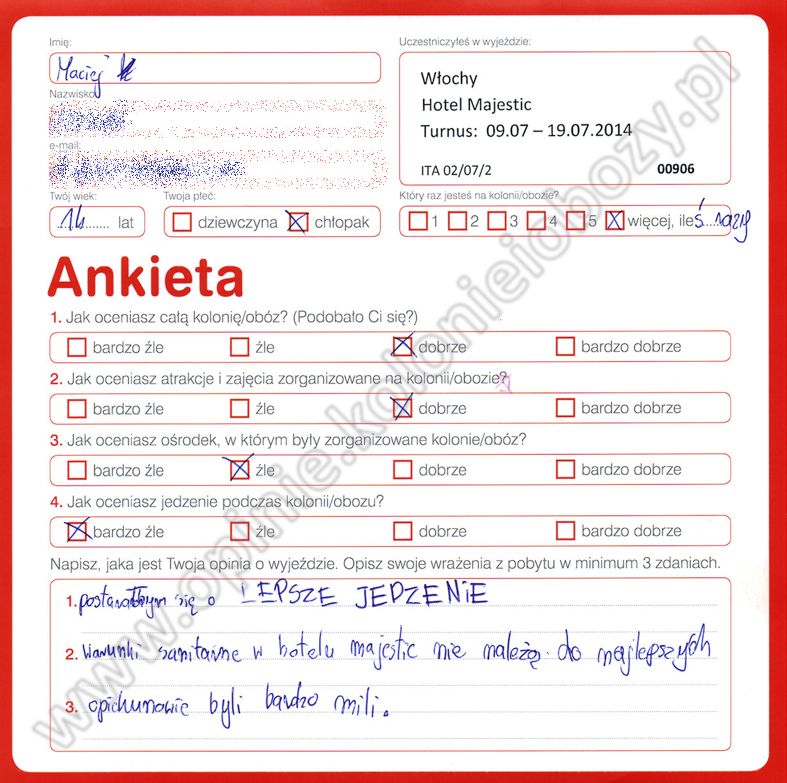 Imię:
Uczestniczyłeś w wyjeździe:
Maciej
Włochy
Hotel Majestic
Turnus: 09.07 – 19.07.2014
ITA 02/07/2 00906
Nazwisko
e-mail:
Twój wiek: Twoja płeć: Który raz jesteś na kolonii/obozie?
14 lat dziewczyna chłopak 1 2 3 4 5 więcej, ileś razy
Ankieta
1. Jak oceniasz całą kolonię/obóz? (Podobało Ci się?)
bardzo źle źle dobrze bardzo dobrze
2. Jak oceniasz atrakcje i zajęcia zorganizowane na kolonii/obozie?
bardzo źle źle dobrze bardzo dobrze
3. Jak oceniasz ośrodek, w którym były zorganizowane kolonie/obóz?
bardzo źle źle dobrze bardzo dobrze
4. Jak oceniasz jedzenie podczas kolonii/obozu?
bardzo źle źle dobrze bardzo dobrze
Napisz, jaka jest Twoja opinia o wyjeździe. Opisz swoje wrażenia z pobytu w minimum 3 zdaniach.
1. postarałbym się o LEPSZE JEDZENIE
2. warunki sanitarne w hotelu majestic nie należą do najlepszych
3. opiekunowie byli bardzo mili.
www.opinie.kolonieiobozy.pl